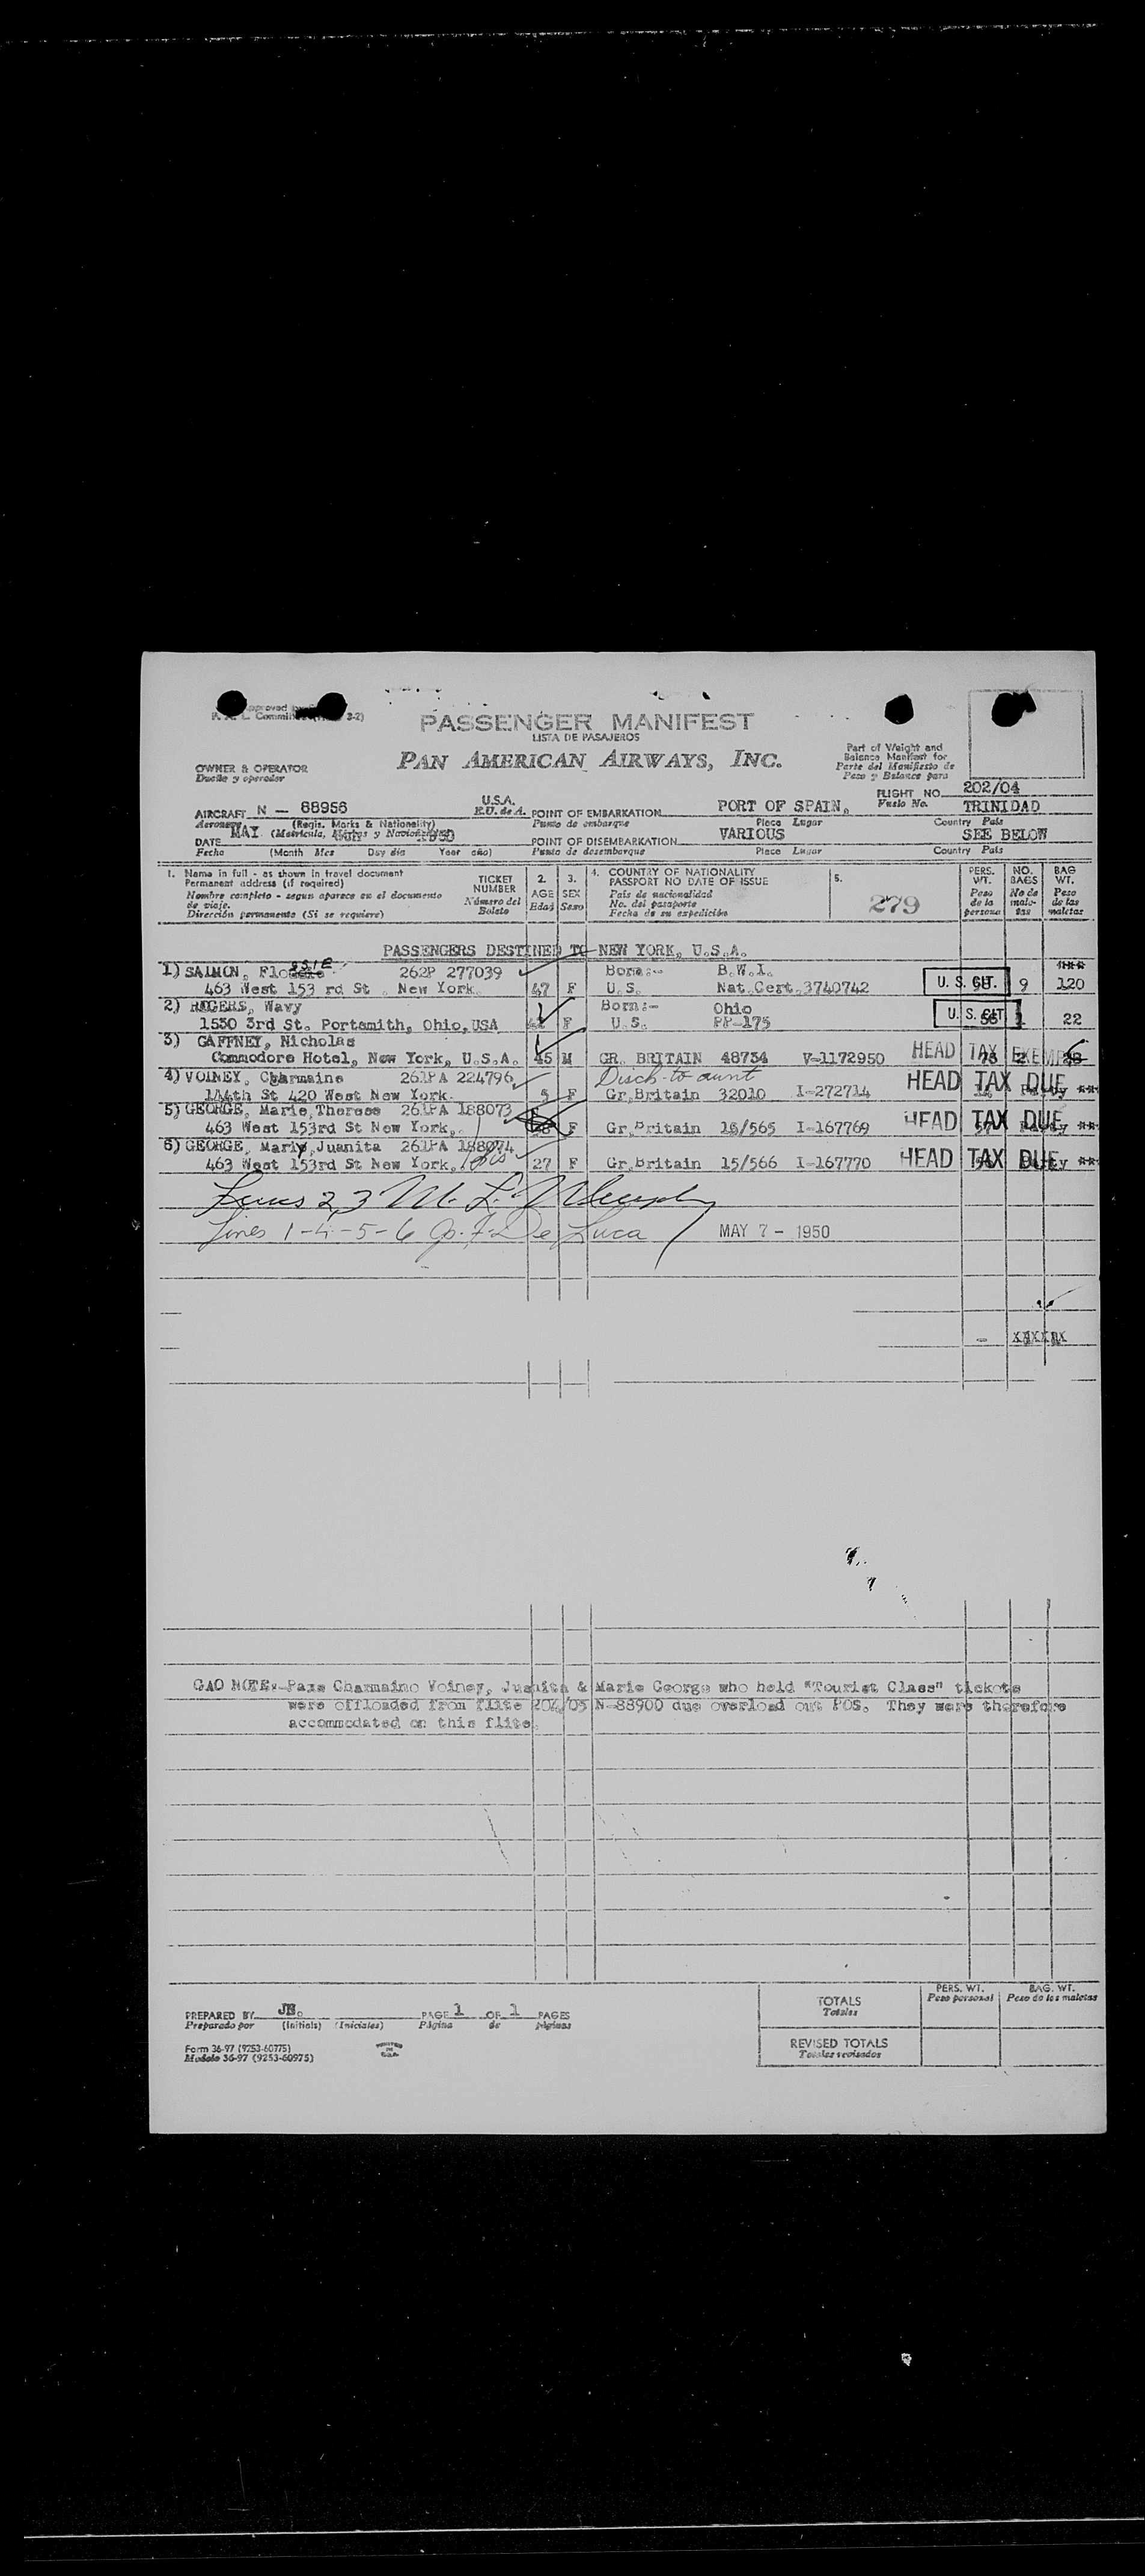 PASSENGER MANIFEST
LISTA DE PASAJEROS
PAN AMERICAN AIRWAYS, INC.
Part of Weight and
Balance Manifest for
Parte del Manifiesto de
Peso y Balance para
OWNER & OPERATOR
Dueño y operador
FLIGHT NO. 202/04
Vuelo No.
AIRCRAFT N - 88956 U.S.A. POINT OF EMBARKATION PORT OF SPAIN, TRINIDAD
Aeronave (Regis. Marks & Nationality) E.U. de A. Punto de embarque Place Lugar Country País
DATE MAY 1950 POINT OF DISEMBARKATION VARIOUS SEE BELOW
Fecha (Month Mes Day día Year año) Punto de desembarque Place Lugar Country País
1. Name in full - as shown in travel document
Permanent address (if required)
Nombre completo - segun aparece en el documento
de viaje.
Dirección permanente (Si se requiere)
TICKET
NUMBER
Número del
Boleto
2.
AGE
Edad
3.
SEX
Sexo
4. COUNTRY OF NATIONALITY
PASSPORT NO DATE OF ISSUE
País de nacionalidad
No. del pasaporte
Fecha de su expedición
5.
279
PERS.
WT.
Peso
de la
persona
NO.
BAGS
No de
male-
tas
BAG
WT.
Peso
de las
maletas
PASSENGERS DESTINED TO NEW YORK, U.S.A.
1) SALMON, Flossie 262P 277039 Born:- B.W.I. ***
463 West 153 rd St . New York. 47 F U.S. Nat.Cert.3740742 U. S. CIT. 9 120
2) ROGERS, Wavy Born:- Ohio
1550 3rd St. Portsmith, Ohio,USA F U.S. PP-175 U. S. CIT 22
3) GAFFNEY, Nicholas
Commodore Hotel, New York, U.S.A. 45 M GR. BRITAIN 48734 V-1172950 HEAD TAX EXEMPT
4) VOINEY, Charmaine 261PA 224796 Disch to aunt
144th St 420 West New York. 5 F Gr.Britain 32010 I-272714 HEAD TAX DUE **
5) GEORGE, Marie,Therese 261PA 188073
463 West 153rd St New York,. F Gr.Britain 15/565 I-167769 HEAD TAX DUE **
6) GEORGE, Mary,Juanita 261PA 188074
463 West 153rd St New York, 27 F Gr.Britain 15/566 I-167770 HEAD TAX DUE **
Lines 2,3
Lines 1-4-5-6 De Luca MAY 7 - 1950
GAO NOTE:-Paxs Charmaine Voiney, Juanita & Marie George who held "Tourist Class" tickets
were offloaded from flite 204/05 N-88900 due overload out POS. They were therefore
accommodated on this flite.
PREPARED BY JB. PAGE 1 OF 1 PAGES
Preparado por (Initials) (Iniciales) Página de páginas
Form 36-97 (9253-60775)
Modelo 36-97 (9253-60975)
PERS. WT.
Peso personal
BAG. WT.
Peso de las maletas
TOTALS
Totales
REVISED TOTALS
Totales revisados